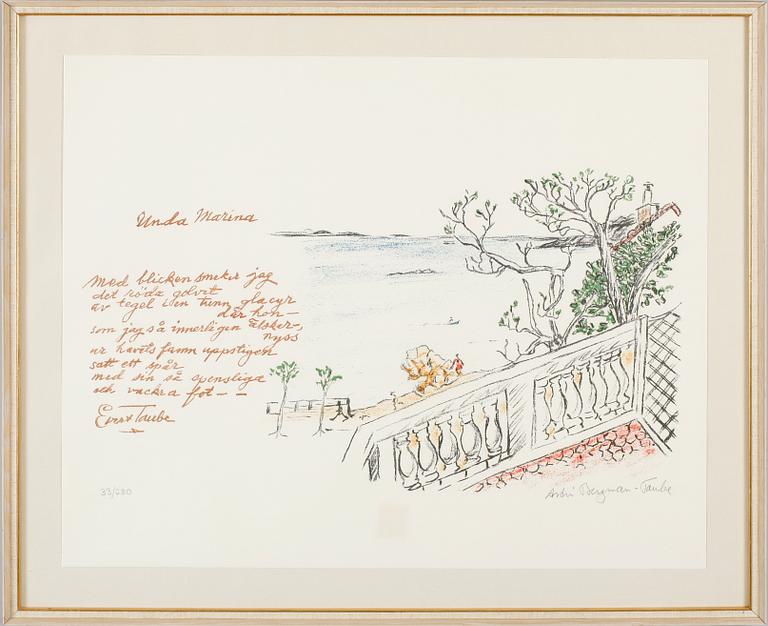 Unda Marina
Med blicken smeker jag
det röda golvet
av tegel i en tunn glacyr
där hon—
som jag så innerligen älsker—
nyss
ur havets famn uppstigen
satt ett spår
med sin så spensliga
och vackra fot— —
Evert Taube
33/280
Astri Bergman-Taube